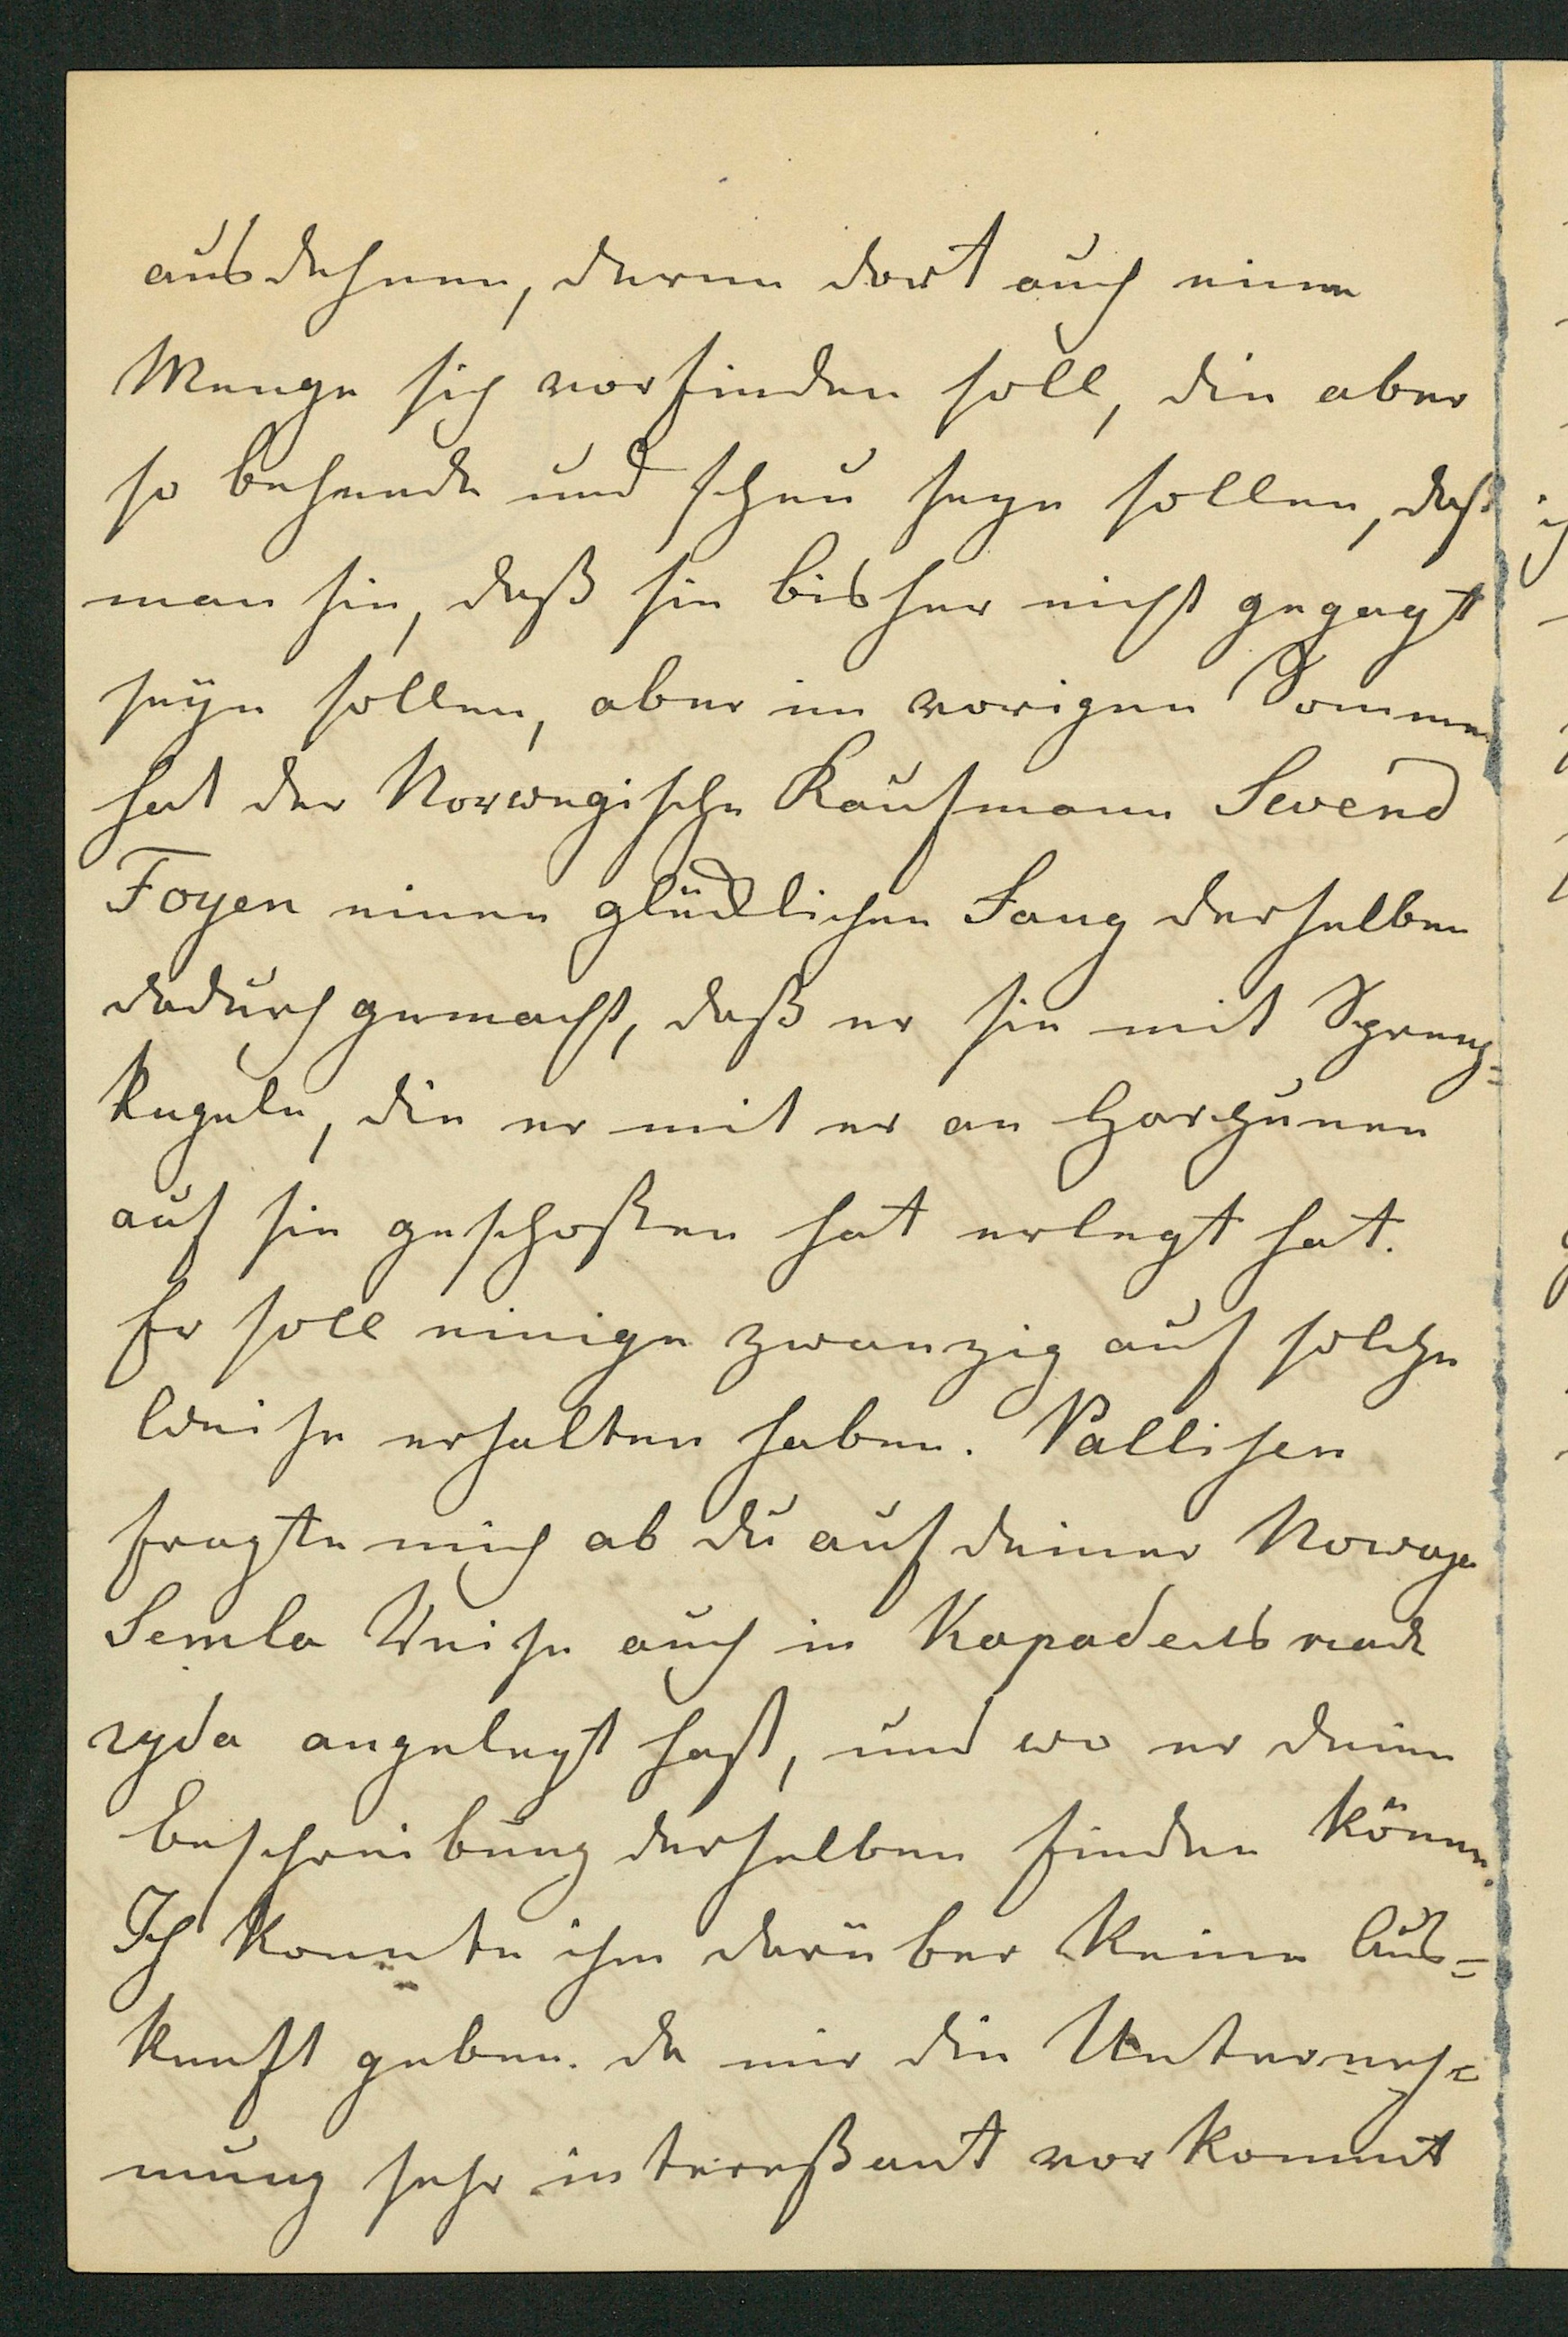 ausdehnen, deren dort auch eine
Menge sich vorfinden soll, die aber
so behende und scheu seyn sollen, daß
man sie, daß sie bisher nicht gegagt
seyn sollen, aber im vorigen Sommer
hat der Norwegische Kaufmann Sevend
Foyen einen glücklichen Fang derselben
dadurch gemacht, daß er sie mit Spreng=
kugeln, die er mit er an Harpunen
auf sie geschoßen hat erlegt hat.
Er soll einige zwanzig auf solche
Weise erhalten haben. Pallisen
fragte mich ob du auf deiner Nowaja
Semla Reise auch in
angelegt hast, und wo er deine
Beschreibung derselben finden könne.
Ich konnte ihm darüber keine Aus=
kunft geben. da mir die Unterneh=
mung sehr intereßant vorkommt